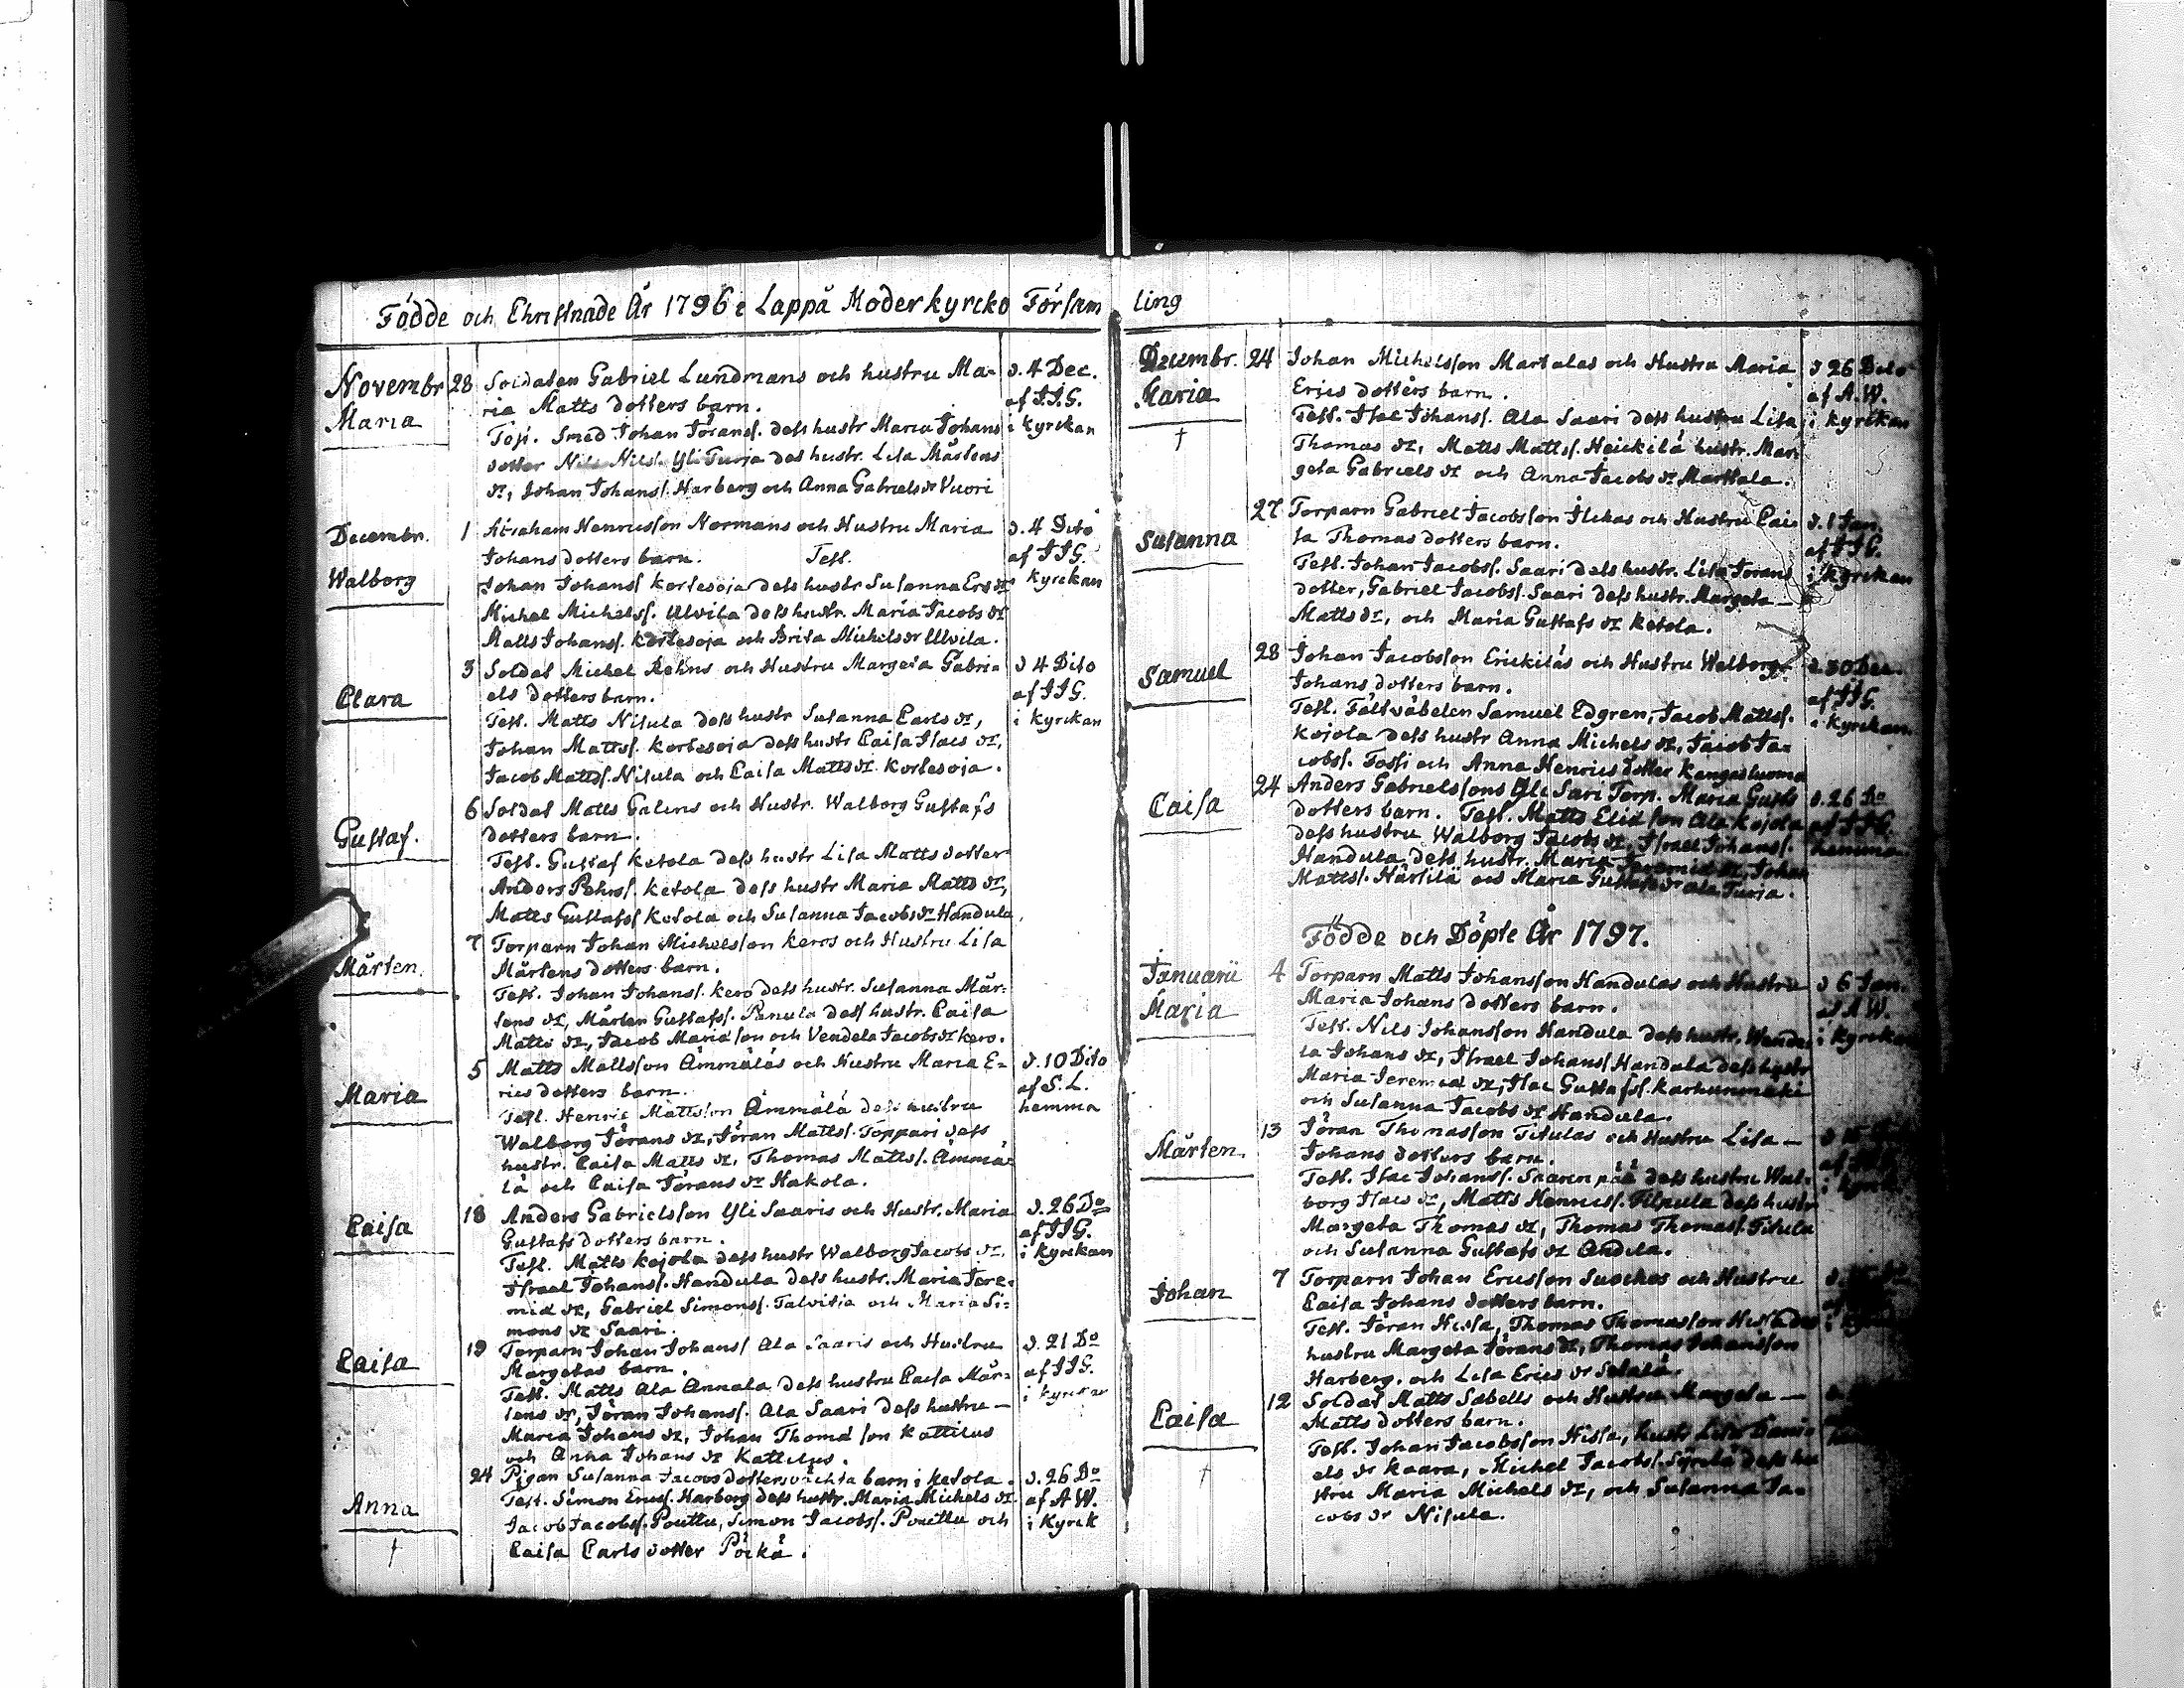 Födde och Christnade År 1796 i Lappå Moderkyrcko Församling
Novembr 28 Soldaten Gabriel Lundmans och hustru Ma= d. 4 Dec.
Maria ria Matts dotters barn. af J.J.G.
Test. Smed Johan Jörans/. dess hustr Maria Johans i kyrckan
dotter Nils Nils/. Yli Turja dess hustr. Lisa Mårtens
dr, Johan Johans/. Harberg och Anna Gabriels dr Vuori
Decembr. 1 Abraham Henricsson Normans och Hustru Maria d. 4 Dito
Johans dotters barn. Test. af J.J.G.
Walborg Johan Johans/ Kortesoja dess hustr Susanna Ers dr i kyrckan
Michel Michels/. Ulvila dess hustr. Maria Jacobs dr
Matts Johans/. Kortesoja och Brita Michels dr Ulvila.
3 Soldat Michel Rehns och Hustru Margeta Gabri= d 4 Dito
Clara els dotters barn. af J.J.G.
Test. Matts Nisula dess hustr Susanna Carls dr, i kyrckan
Johan Matts/. Kortesoja dess hustr Caisa Isacs dr,
Jacob Matts/. Nisula och Caisa Matts dr Kortesoja.
6 Soldat Matts Galens och Hustr. Walborg Gustafs
Gustaf. dotters barn.
Test. Gustaf Ketola dess hustr Lisa Matts dotter
Anders Pehrs/. Ketola dess hustr Maria Matts dr,
Matts Gustafs/ Ketola och Susanna Jacobs dr Handula.
7 Torparn Johan Michelsson Keros och Hustru Lisa
Mårten. Mårtens dotters barn.
Test. Johan Johans/. Kero dess hustr. Susanna Mår=
tens dr, Mårten Gustafs/. Panula dess hustr. Caisa
Matts dr, Jacob Mariæ son och Vendela Jacobs dr Kero.
5 Matts Mattsson Ämmäläs och Hustru Maria E= d. 10 Dito
Maria rics dotters barn. af S. L.
Test. Henric Mattsson Ämmälä dess hustru hemma
Walborg Jörans dr, Jöran Matts/. Toppari dess
hustr. Caisa Matts dr, Thomas Matts/. Ämmä=
lä och Caisa Jörans dr Hakola.
Caisa 18 Anders Gabrielsson Yli Saaris och Hustr. Maria d. 26 Do
Gustafs dotters barn. af J.J.G.
Test. Matts Kojola dess hustr Walborg Jacobs dr, i kyrckan
Israel Johans/. Handula dess hustr. Maria Jere=
miæ dr, Gabriel Simons/. Talvitia och Maria Si=
mons dr Saari.
Caisa 19 Torparn Johan Johans/ Ala Saaris och Hustru d. 21 Do
Margetas barn. af J.J.G.
Test. Matts Ala Annala dess hustru Caisa Mår=
tens dr, Jöran Johans/. Ala Saari dess hustru —
Maria Johans dr, Johan Thomæ son Kattilus
och Anna Johans dr Kattilus.
24 Pigan Susanna Jacobs dotters oächta barn i Ketola. d. 26 Do
Anna Test. Simon Erics/. Harberg dess hustr. Maria Michels dr. af A W.
† Jacob Jacobs/. Pouttu, Simon Jacobs/. Pouttu och i Kyrck
Caisa Carls dotter Pöckä.
Decembr. 24 Johan Michelsson Martalas och Hustru Maria d 26 Dito
Maria Erics dotters barn. af A.W.
† Test. Isac Johans/. Ala Saari dess hustru Lisa i kyrckan
Thomas dr, Matts Matts/. Heickilä hustr. Mar=
geta Gabriels dr och Anna Jacobs dr Marttala.
27 Torparn Gabriel Jacobsson Ilckas och Hustru Cai= d. 1 Jan.
Susanna sa Thomas dotters barn. af J.J.G.
Test. Johan Jacobs/. Saari dess hustr. Lisa Jörans i kyrckan
dotter, Gabriel Jacobs/. Saari dess hustr. Margeta —
Matts dr, och Maria Gustafs dr Ketola.
28 Johan Jacobsson Erickiläs och Hustru Walborg d. 30 Dec.
Samuel Johans dotters barn. af J.J.G.
Test. Fältväbelen Samuel Edgren, Jacob Matts/. i kyrckan.
Kojola dess hustr Anna Michels dr, Jacob Ja=
cobs/. Tossi och Anna Henrics dotter Kangasluoma
Caisa 24 Anders Gabrielssons Yli Sari Torp. Maria Gusts d. 26 Do
dotters barn. Test. Matts Eliæ son Ala Kojola af J.J.G.
dess hustru Walborg Jacobs dr, Israel Johans/. hemma
Handula dess hustr. Maria Jeremiæ dr, Johan
Matts/. Härsilä och Maria Gustafs dr Ala Turja.
Födde och Döpte År 1797.
Januarii 4 Torparn Matts Johansson Handulas och Hustru d 6 Jan.
Maria Maria Johans dotters barn. af A W.
Test. Nils Johansson Handula dess hustr. Wende= i kyrckan
la Johans dr, Israel Johans/ Handula dess hustr
Maria Jeremiæ dr, Isac Gustafs/. Karhunmäki
och Susanna Jacobs dr Handula.
13 Jöran Thomasson Tiitulas och Hustru Lisa —
Mårten. Johans dotters barn.
Test. Isac Johans/. Saarenpää dess hustru Wal=
borg Isacs dr, Matts Henrics/. Filpula dess hustr
Margeta Thomas dr, Thomas Thomas/. Titula
och Susanna Gustafs dr Andila.
Johan 7 Torparn Johan Ericsson Suockos och Hustru
Caisa Johans dotters barn.
Test. Jöran Hissa, Thomas Thomasson
hustru Margeta Jörans dr, Thomas Johansson
Harberg, och Lisa Erics dr
12 Soldat Matts Sabells och Hustru Margeta —
Caisa Matts dotters barn.
† Test. Johan Jacobsson Hissa, hustr Lisa Dani=
els dr Kaara, Michel Jacobs/. Syrilä dess hu
stru Maria Michels dr, och Susanna Ja=
cobs dr Nisula.